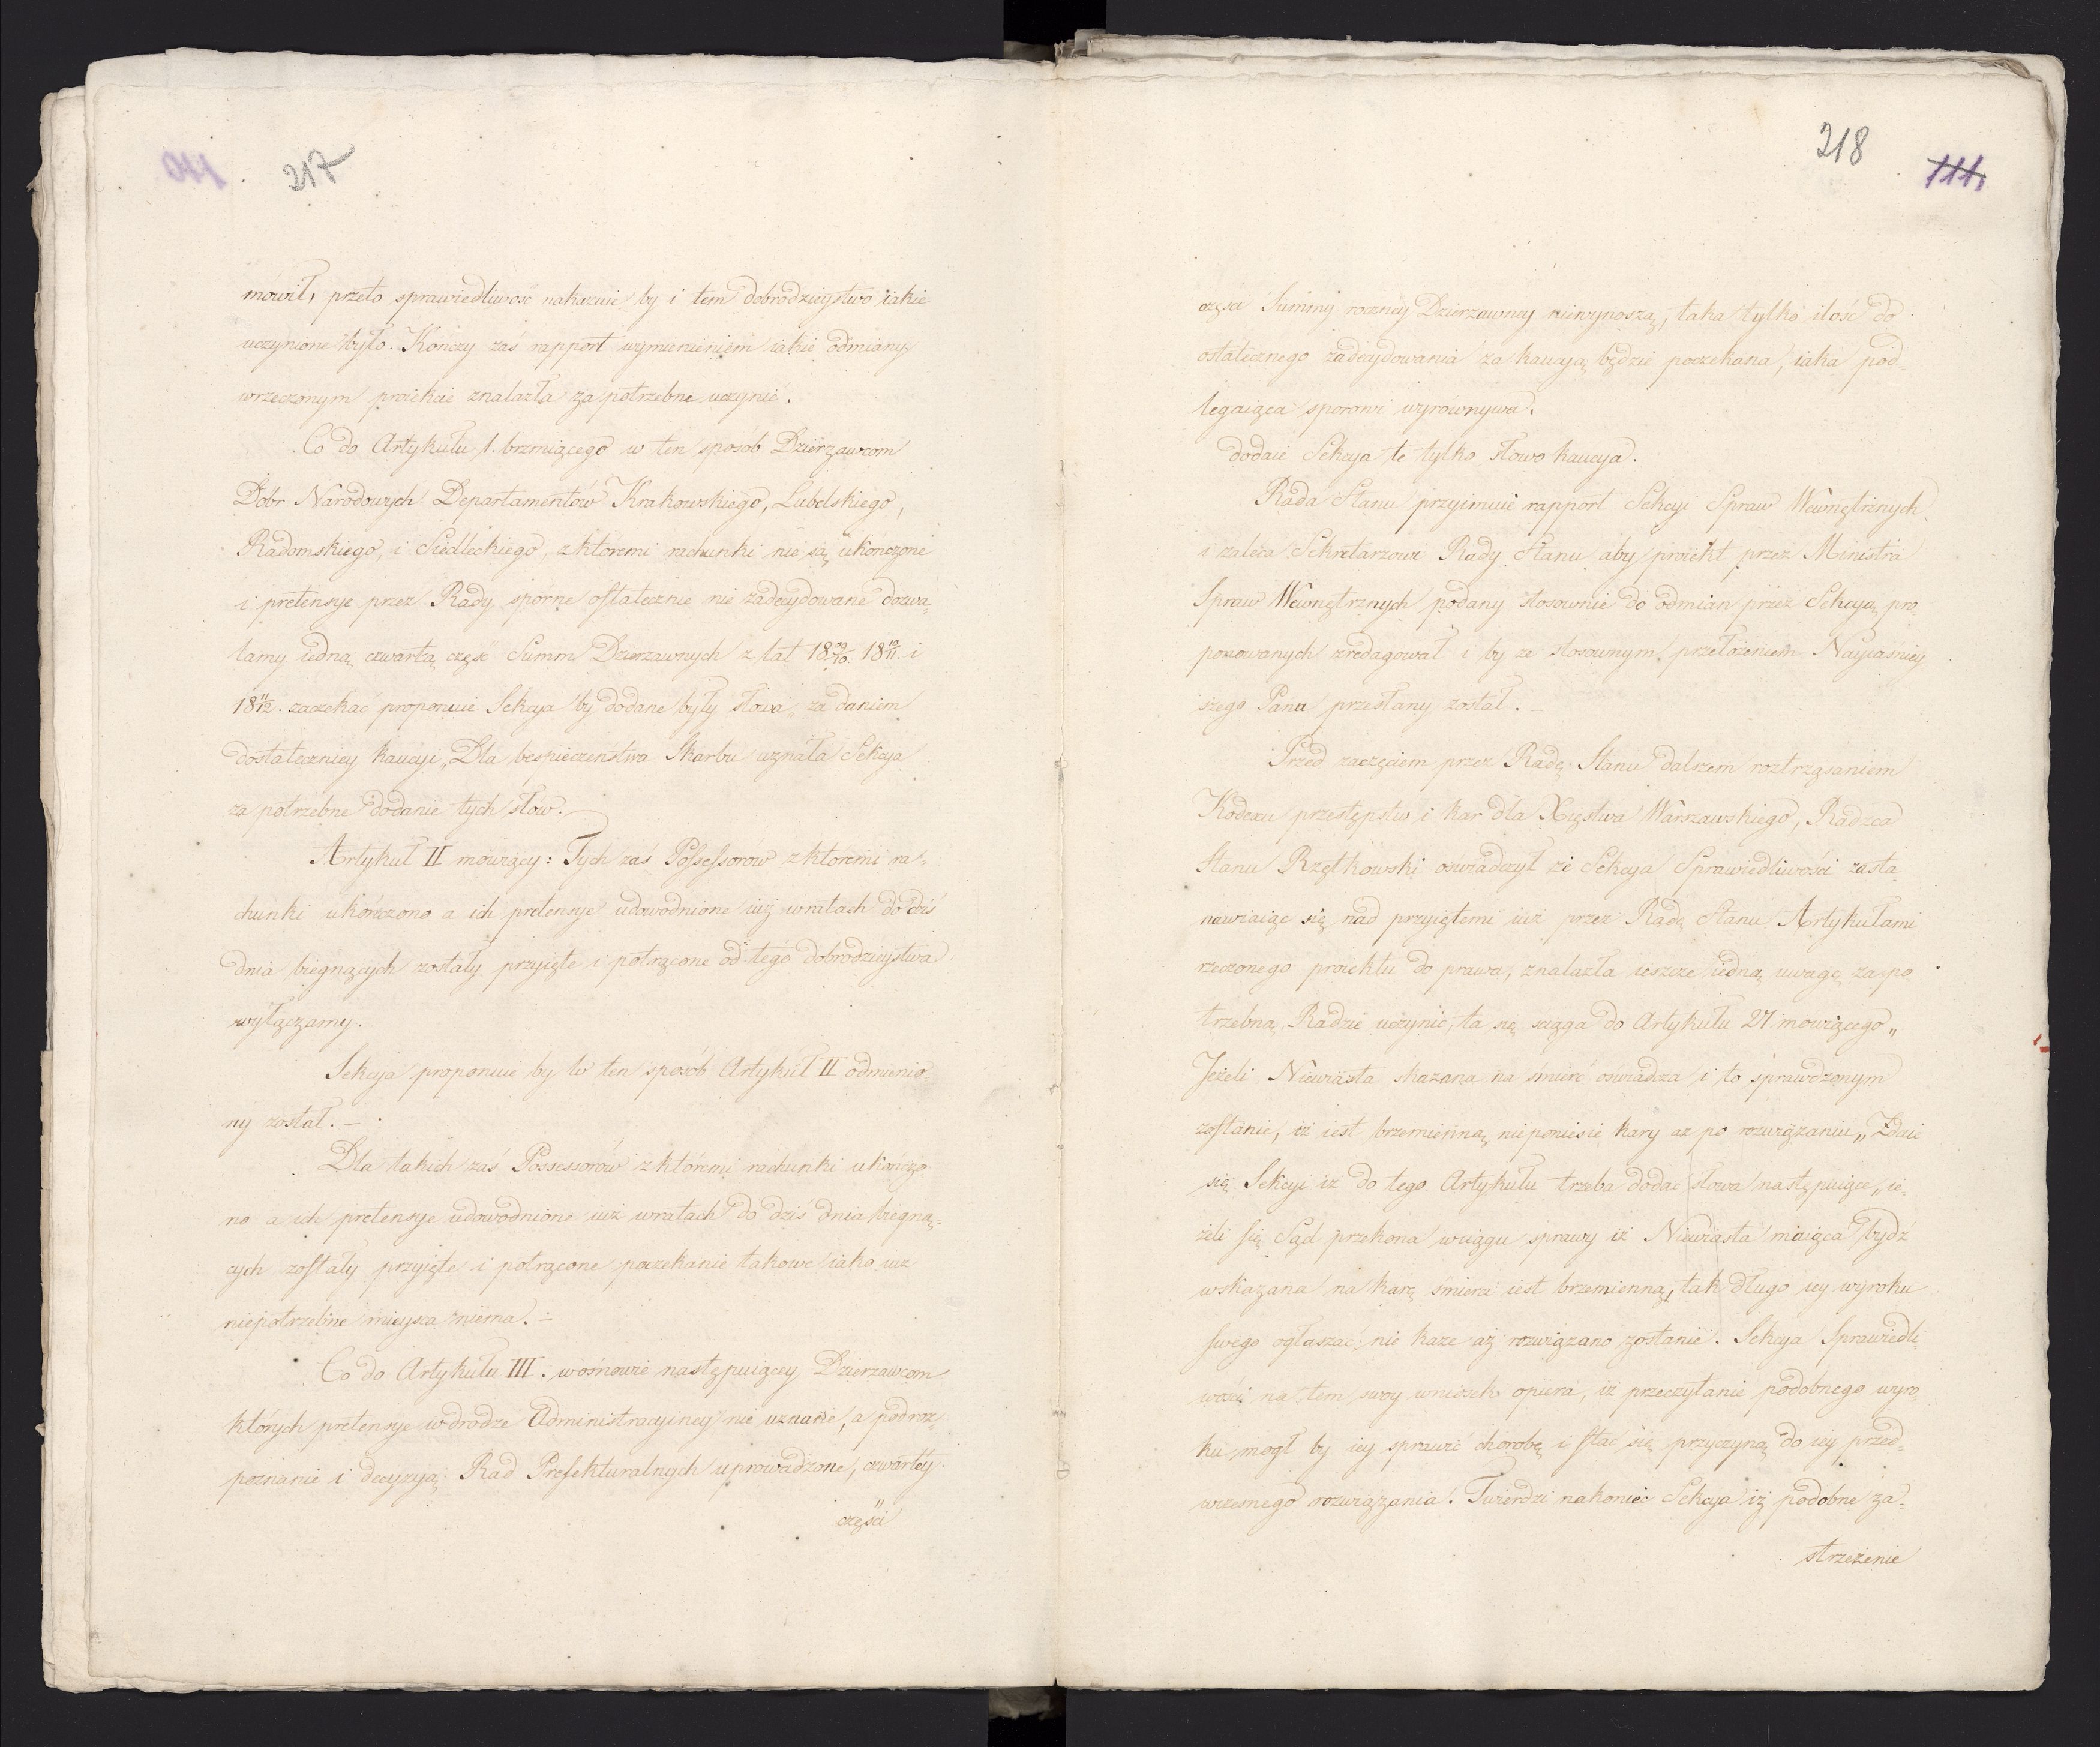 217
mówił, przeto sprawiedliwosc nakazuie by i tem dobrodzieystwo iakie
uczynione było. Kończy zaś rapport wymienieniem iakie odmiany
wrzeczonym proiekcie znalazła za potrzebne uczynić.
Co do Artykułu 1. brzmiącego w ten sposob Dzierzawcom
Dóbr Narodowych Departamentów Krakowskiego, Lubelskiego,
Radomskiego, i Siedleckiego, z ktoremi rachunki nie są ukończone
i pretensye przez Rady spórne ostatecznie nie zadecydowane dozwa-
lamy iedną czwartą część Summ Dzierzawnych z lat 18 09/10. 18 10/11. i
18 11/12. zaczekać proponuie Sekcya by dodane były słowa, za daniem
dostateczney kaucyi„ Dla bespieczenstwa Skarbu uznała Sekcya
za potrzebne dodanie tych słow.
Artykuł II mowiący: Tych zaś Possessorow z ktoremi ra-
chunki ukończono a ich pretensye udowodnione iuż w ratach do dziś
dnia biegnących zostały przyięte i potrącone od tego dobrodzieystwa
wyłączamy.
Sekcya proponuie by w ten sposób Artykuł II odmienio
ny został. —
Dla takich zaś Possessorów z któremi rachunki ukończo
no a ich pretensye udowodnione iuż wratach do dziś dnia biegną-
cych zostały przyięte i potrącone poczekanie takowe iako iuż
niepotrzebne mieysca niema. —
Co do Artykułu III. wosnowie następuiącey Dzierzawcom
których pretensye wdrodze Administracyiney nie uznane, a podroz-
poznanie i decyzyą Rad Prefekturalnych uprowadzone, czwartey
części
218
111
części Summy roczney Dzierzawney niewynoszą, taka tylko ilość do
ostatecznego zadecydowania za kaucyą będzie poczekana, iaka pod
legaiąca sporowi wyrownywa.
dodaie Sekcya te tylko słowo kaucya.
Rada Stanu przyimuie rapport Sekcyi Spraw Wewnętrznych
i zaleca Sekretarzowi Rady Stanu aby proiekt przez Ministra
Spraw Wewnętrznych podany stosownie do odmian przez Sekcyą pro
ponowanych zredagował i by ze stosownym przełożeniem Nayiasniey
szego Pana przesłany został. —
Przed zaczęciem przez Radę Stanu dalszem roztrząsaniem
Kodexu przestępstw i kar dla Xięstwa Warszawskiego, Radzca
Stanu Rzętkowski oswiadczył że Sekcya Sprawiedliwości zasta
nawiaiąc się nad przyiętemi iuż przez Radę Stanu Artykułami
rzeczonego proiektu do prawa, znalazła ieszcze iedną uwagę za po
trzebną Radzie uczynić, ta się sciąga do Artykułu 27. mowiącego„
Jeżeli Niewiasta skazana na śmierć oświadcza i to sprawdzonym
zostanie, iż iest brzemienną nieponiesie kary aż po rozwiązaniu„ Zdaie
się Sekcyi iż do tego Artykułu trzeba dodać słowa następuiące„ ie-
żeli się Sąd przekona wciągu sprawy iż Niewiasta maiąca bydź
wskazana na karę śmierci iest brzemienną, tak długo iey wyroku
swego ogłaszać nie każe aż rozwiązano zostanie. Sekcya Sprawiedli
wości na tem swoy wniosek opiera, iż przeczytanie podobnego wyro-
ku mogł by iey sprawić chorobę i stać się przyczyną do iey przed-
wczesnego rozwiązania. Twierdzi nakoniec Sekcya iż podobne za-
strzeżenie